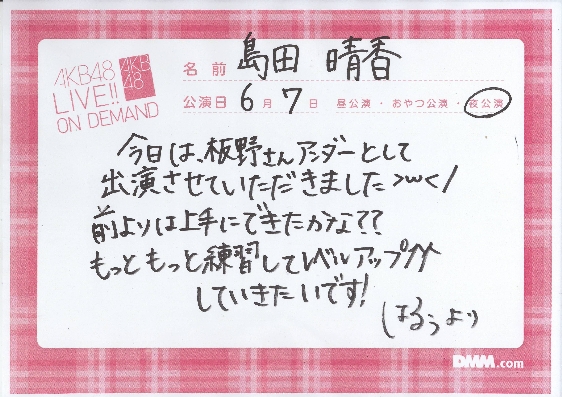 AKB48
LIVE!!
ON DEMAND
AKB
48
名前 島田 晴香
公演日 6月7日 昼公演・おやつ公演・夜公演
今日は、板野さんアンダーとして
出演させていただきました>w</
前よりは上手にできたかな??
もっともっと練習してレベルアップ↑↑
していきたいです!
はるぅより
DMM.com